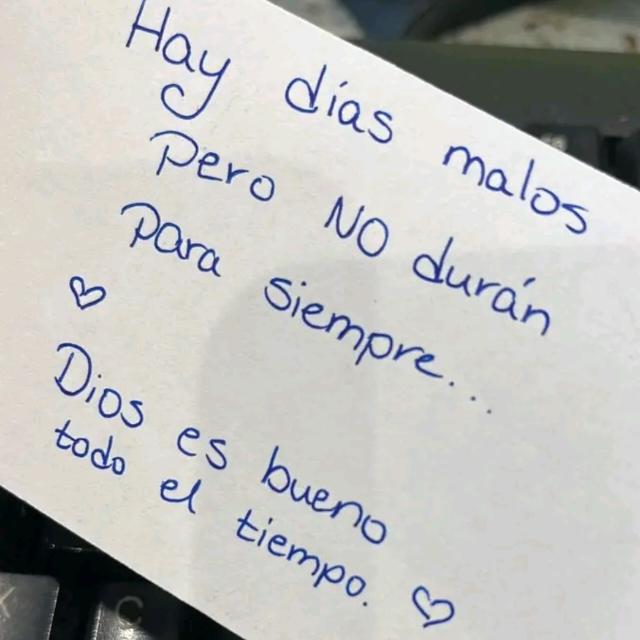 Hay días malos
Pero NO durán
para siempre...
♡
Dios es bueno
todo el tiempo. ♡
X
C